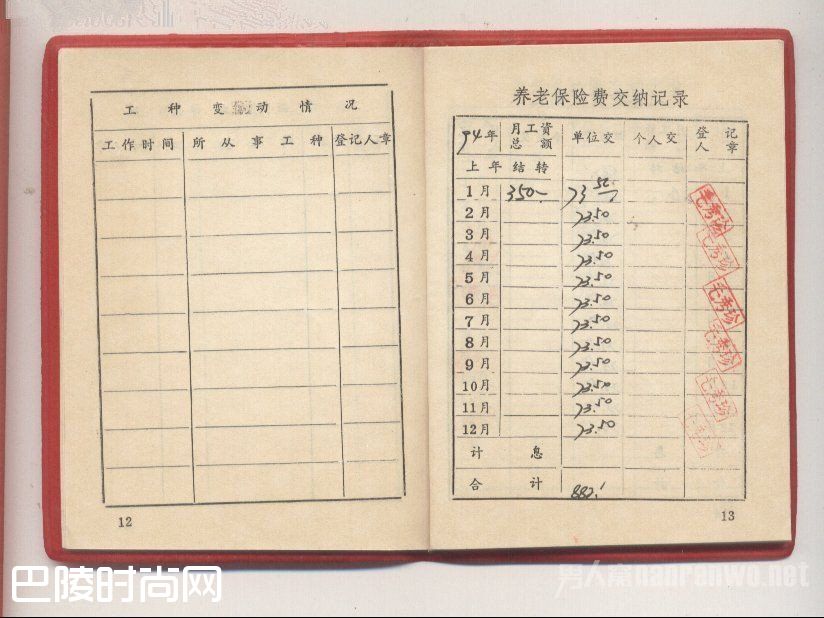 工种变动情况
工作时间 所从事工种 登记人章
12
养老保险费交纳记录
94年 月工资总额 单位交 个人交 登记人章
上年结转
1月 350- 73.50
2月 73.50
3月 73.50
4月 73.50
5月 73.50
6月 73.50
7月 73.50
8月 73.50
9月 73.50
10月 73.50
11月 73.50
12月 73.50
计息
合计 882.-
毛秀珍
毛秀珍
毛秀珍
毛秀珍
毛秀珍
13
巴陵时尚网
男人窝nanrenwo.net